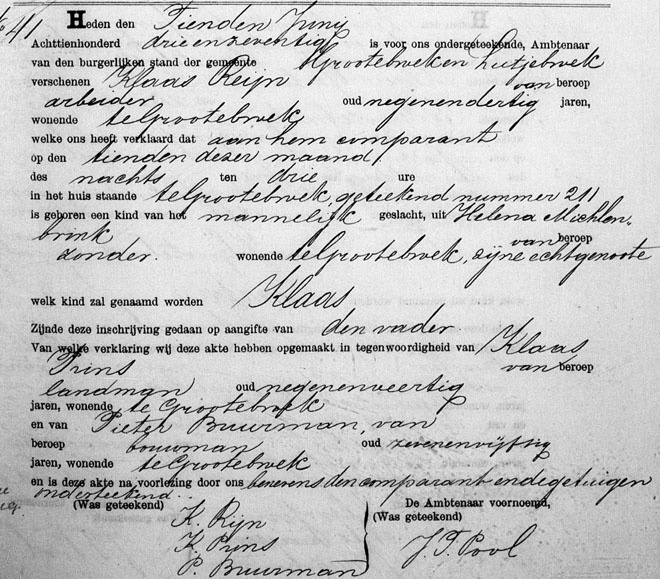 41 Heden den Tienden Juny
Achttienhonderd drieenzeventig is voor ons ondergeteekende, Ambtenaar
van den burgerlijken stand der gemeente Grootebroek en Lutjebroek
verschenen Klaas Reijn van beroep
arbeider oud negenendertig jaren,
wonende te Grootebroek
welke ons heeft verklaard dat aan hem comparant
op den tienden dezer maand,
des nachts ten drie ure
in het huis staande te Grootebroek, geteekend nummer 211
is geboren een kind van het mannelijk geslacht, uit Helena Michlen-
brink van beroep
zonder. wonende te Grootebroek, zijne echtgenoote
welk kind zal genaamd worden Klaas
Zijnde deze inschrijving gedaan op aangifte van den vader
Van welke verklaring wij deze akte hebben opgemaakt in tegenwoordigheid van Klaas
Prins van beroep
landman oud negenenveertig
jaren, wonende te Grootebroek
en van Pieter Buurman, van
beroep bouwman oud zevenenvijftig
jaren, wonende te Grootebroek
en is deze akte na voorlezing door ons benevens den comparant en de getuigen
onderteekend..
(Was geteekend) De Ambtenaar voornoemd,
K. Rijn (Was geteekend)
K. Prins J. T. Pool
P. Buurman